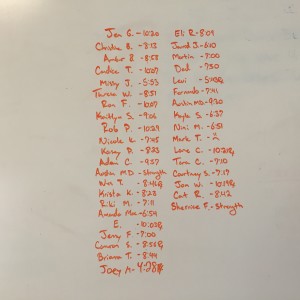 Jen G. - 10:20
Christine B. - 8:13
Amber B. - 8:58
Candice T. - 10:07
Missy J. - 5:53
Theresa W. - 8:51
Ron F. - 10:07
Kaitlyn S. - 9:06
Rob P. - 10:29
Nicole K. - 7:45
Kasey P. - 8:23
Adam C. - 9:57
Austin MD - Strength
Wes T.
Krista K. - 8:23
Riki M. - 7:11
Amanda Mc - 6:54
E.
Jerry F. - 7:00
Cameron S.
Briana T. - 8:44
Joey M - 4:28
Eli R. - 8:09
Jared J. - 6:10
Martin - 8:00
Dad - 7:30
Levi
Fernando - 7:41
Austin MD - 9:20
Kayla S. - 6:37
Nini M. - 6:51
Mark T. -
Lane C.
Tara C. - 7:10
Courtney S. - 7:17
Jon W.
Cat R. - 8:42
Sherrise F. - Strength